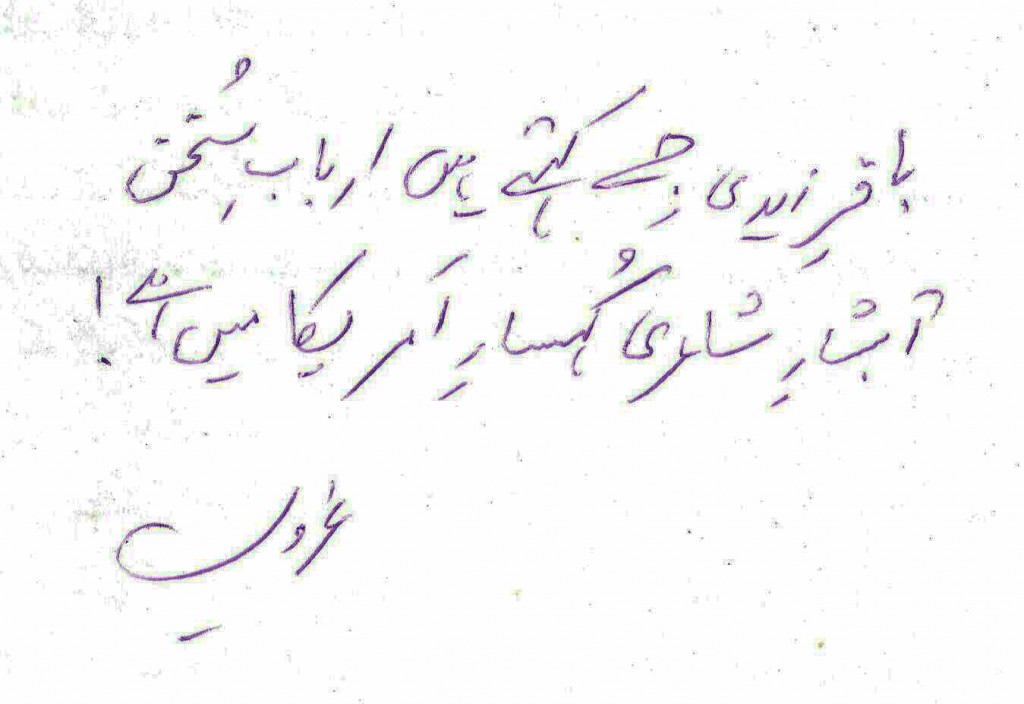 باقر زیدی جسے کہتے ہیں اربابِ سُخن
آبشارِ شاعری کُہسارِ اَمریکا میں ہے!